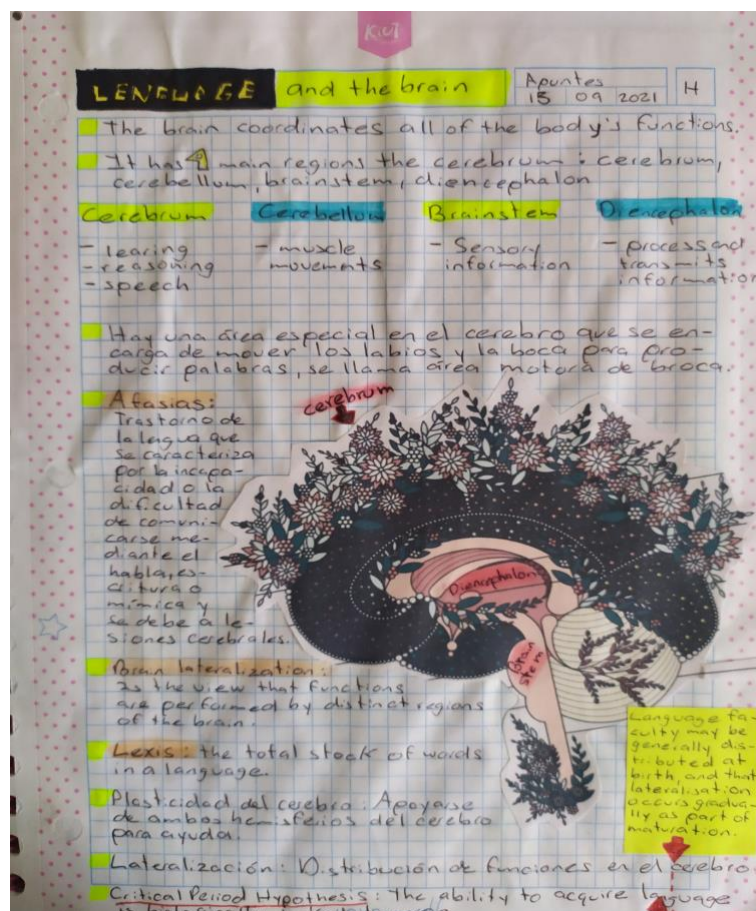 KiUT
LENGUAGE and the brain
Apuntes
15 09 2021
H
The brain coordinates all of the body's functions.
It has 4 main regions the cerebrum : cerebrum,
cerebellum, brainstem, diencephalon
Cerebrum Cerebellum Brainstem Diencephalon
- learing - muscle - Sensory - process and
- reasoning movemnts information transmits
- speech information
Hay una área especial en el cerebro que se en-
carga de mover los labios y la boca para pro-
ducir palabras, se llama área motora de broca.
Afasias:
Trastorno de
la lengua que
se caracteriza
por la incapa-
cidad o la
dificultad
de comuni-
carse me-
diante el
habla, es-
critura o
mímica y
se debe a le-
siones cerebrales.
cerebrum
Diencephalon
Brain
stem
Brain lateralization:
Is the view that functions
are performed by distinct regions
of the brain.
Lexis: the total stock of words
in a language.
Plasticidad del cerebro: Apoyarse
de ambos hemisferios del cerebro
para ayuda.
Language fa-
culty may be
generally dis-
tributed at
birth, and that
lateralisation
occurs gradua-
lly as part of
maturation.
Lateralización: Distribución de funciones en el cerebro
Critical Period Hypothesis: The ability to acquire language